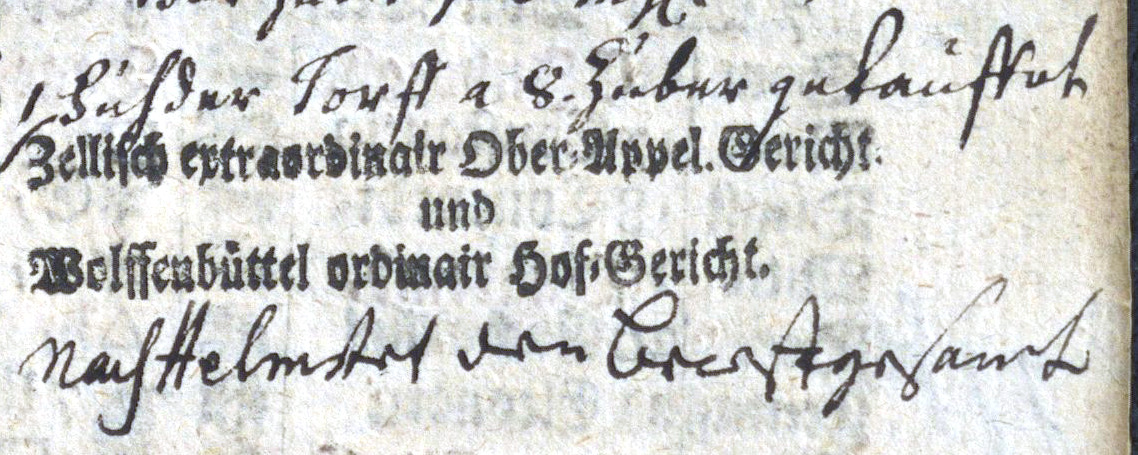 1 Fuhder Torff a 8. Züber gekauffet
Zellisch extraordinair Ober-Appel. Gericht.
und
Wolffenbüttel ordinair Hof-Gericht.
Nach Helmstet den gesamt